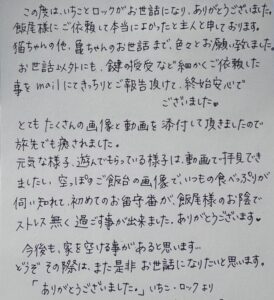 この度は、いちことロックがお世話になり、ありがとうございました。
飯尾様にご依頼して本当によかったと主人と申しております。
猫ちゃんの他、亀ちゃんのお世話まで、色々とお願い致しました。
お世話以外にも、鍵の受受など細かくご依頼した
事をmailにてきっちりとご報告頂けて、終始安心で
ございました。
とてもたくさんの画像と動画を添付して頂きましたので
旅先でも癒されました。
元気な様子、遊んでもらっている様子は、動画で拝見でき
ましたし、空っぽのご飯台の画像で、いつもの食べっぷりが
伺い知れ、初めてのお留守番が、飯尾様のお陰で
ストレス無く過ごす事が出来ました。ありがとうございます。
今後も、家を空ける事があると思います…
どうぞその際は、また是非お世話になりたいと思います。
「ありがとうございました。」いちこ・ロックより